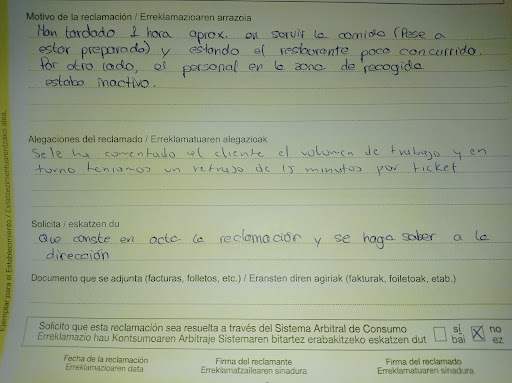 Motivo de la reclamación / Erreklamazioaren arrazoia
Han tardado 1 hora aprox. en servir la comida (Pese a
estar preparada) y estando el restaurante poco concurrido.
Por otro lado, el personal en la zona de recogida
estaba inactivo.
Alegaciones del reclamado / Erreklamatuaren alegazioak
Se le ha comentado al cliente el volumen de trabajo y en
turno teniamos un retraso de 15 minutos por ticket
Solicita / eskatzen du
Que conste en acta la reclamación y se haga saber a la
dirección
Documento que se adjunta (facturas, folletos, etc.) / Eransten diren agiriak (fakturak, foiletoak, etab.)
Solicito que esta reclamación sea resuelta a través del Sistema Arbitral de Consumo
Erreklamazio hau Kontsumoaren Arbitraje Sistemaren bitartez erabakitzeko eskatzen dut
sí no
bai ez
Fecha de la reclamación Firma del reclamante Firma del reclamado
Erreklamazioaren data Erreklamatzailearen sinadura Erreklamatuaren sinadura
Ejemplar para el Establecimiento / Establezimenduarentzako alea